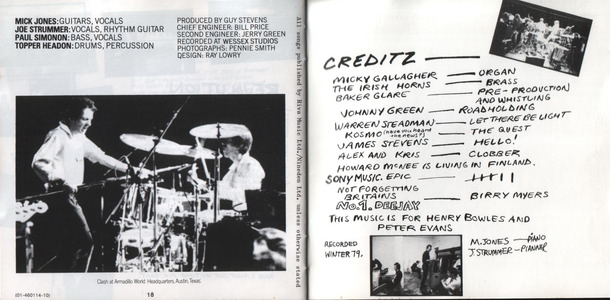 MICK JONES: GUITARS, VOCALS
JOE STRUMMER: VOCALS, RHYTHM GUITAR
PAUL SIMONON: BASS, VOCALS
TOPPER HEADON: DRUMS, PERCUSSION
PRODUCED BY GUY STEVENS
CHIEF ENGINEER: BILL PRICE
SECOND ENGINEER: JERRY GREEN
RECORDED AT WESSEX STUDIOS
PHOTOGRAPHS: PENNIE SMITH
DESIGN: RAY LOWRY
All songs published by Riva Music Ltd./Nineden Ltd. unless otherwise stated
Clash at Armadillo World Headquarters, Austin, Texas.
(01-460114-10)
18
CREDITZ —
MICKY GALLAGHER — ORGAN
THE IRISH HORNS — BRASS
BAKER GLARE — PRE-PRODUCTION
AND WHISTLING
JOHNNY GREEN — ROADHOLDING
WARREN STEADMAN — LET THERE BE LIGHT
KOSMO (have you heard the news?) — THE QUEST
JAMES STEVENS — HELLO!
ALEX AND KRIS — CLOBBER
HOWARD MCNEE IS LIVING IN FINLAND.
SONY MUSIC. EPIC —
NOT FORGETTING
BRITAINS — BIRRY MYERS
No.1. DEEJAY
THIS MUSIC IS FOR HENRY BOWLES AND
PETER EVANS
RECORDED
WINTER 79,
M. JONES — PIANO
J. STRUMMER — PIANNER